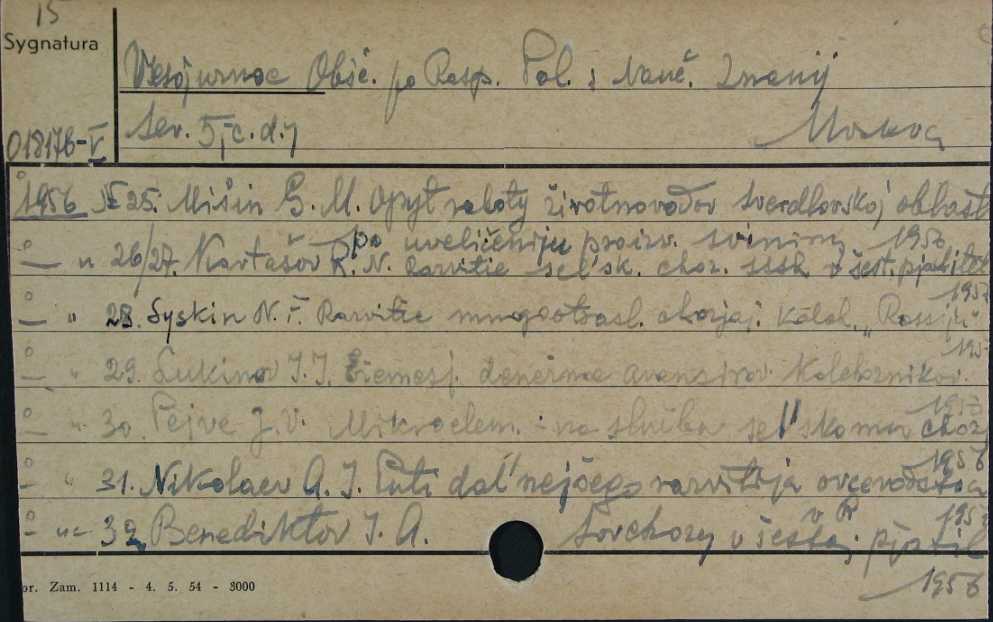 15
Sygnatura
Vsesojuznoe Obšč. po Rasp. Pol. i Nauč. Znanij
018176-V
Ser. 5, c. d. 7
Moskva
1956 V 25. Mišin G. M. Opyt raboty životnovodov Sverdlovskoj oblasti
po uveličeniju proizv. svininy 1956
" 26/27. Kartašov R. N. Razvitie sel'sk. choz. SSSR v šest. pjatilet
1957
" 28. Syskin N. F. Razvitie mnogootrasl. chozjaj. kolch. "Rossija"
195
" 29. Lukinov I. I. Ežemesj. denežnoe avansirov. Kolchoznikov.
" 30. Pejve J. V. Mikroelem. - na službu sel'skomu choz
1956
" 31. Nikolaev A. I. Puti dal'nejšego razvitija ovcevodstva
" 32. Benediktov I. A. Sovchozy v šestoj pjatil
1956
or. Zam. 1114 - 4. 5. 54 - 3000